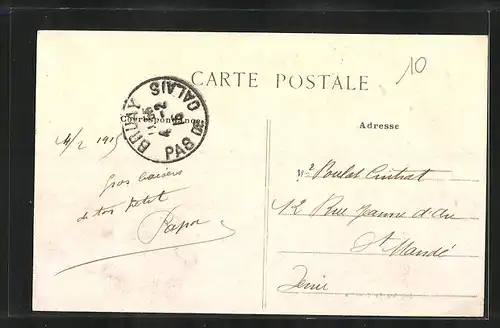 10
CARTE POSTALE
BRUAY
PAS DE CALAIS
4-2
15
Correspondance
Adresse
4/2 1915
Gros baisers
de ton petit
Mr Boulet
12 Rue Jeanne d'Arc
St Mandé
Seine